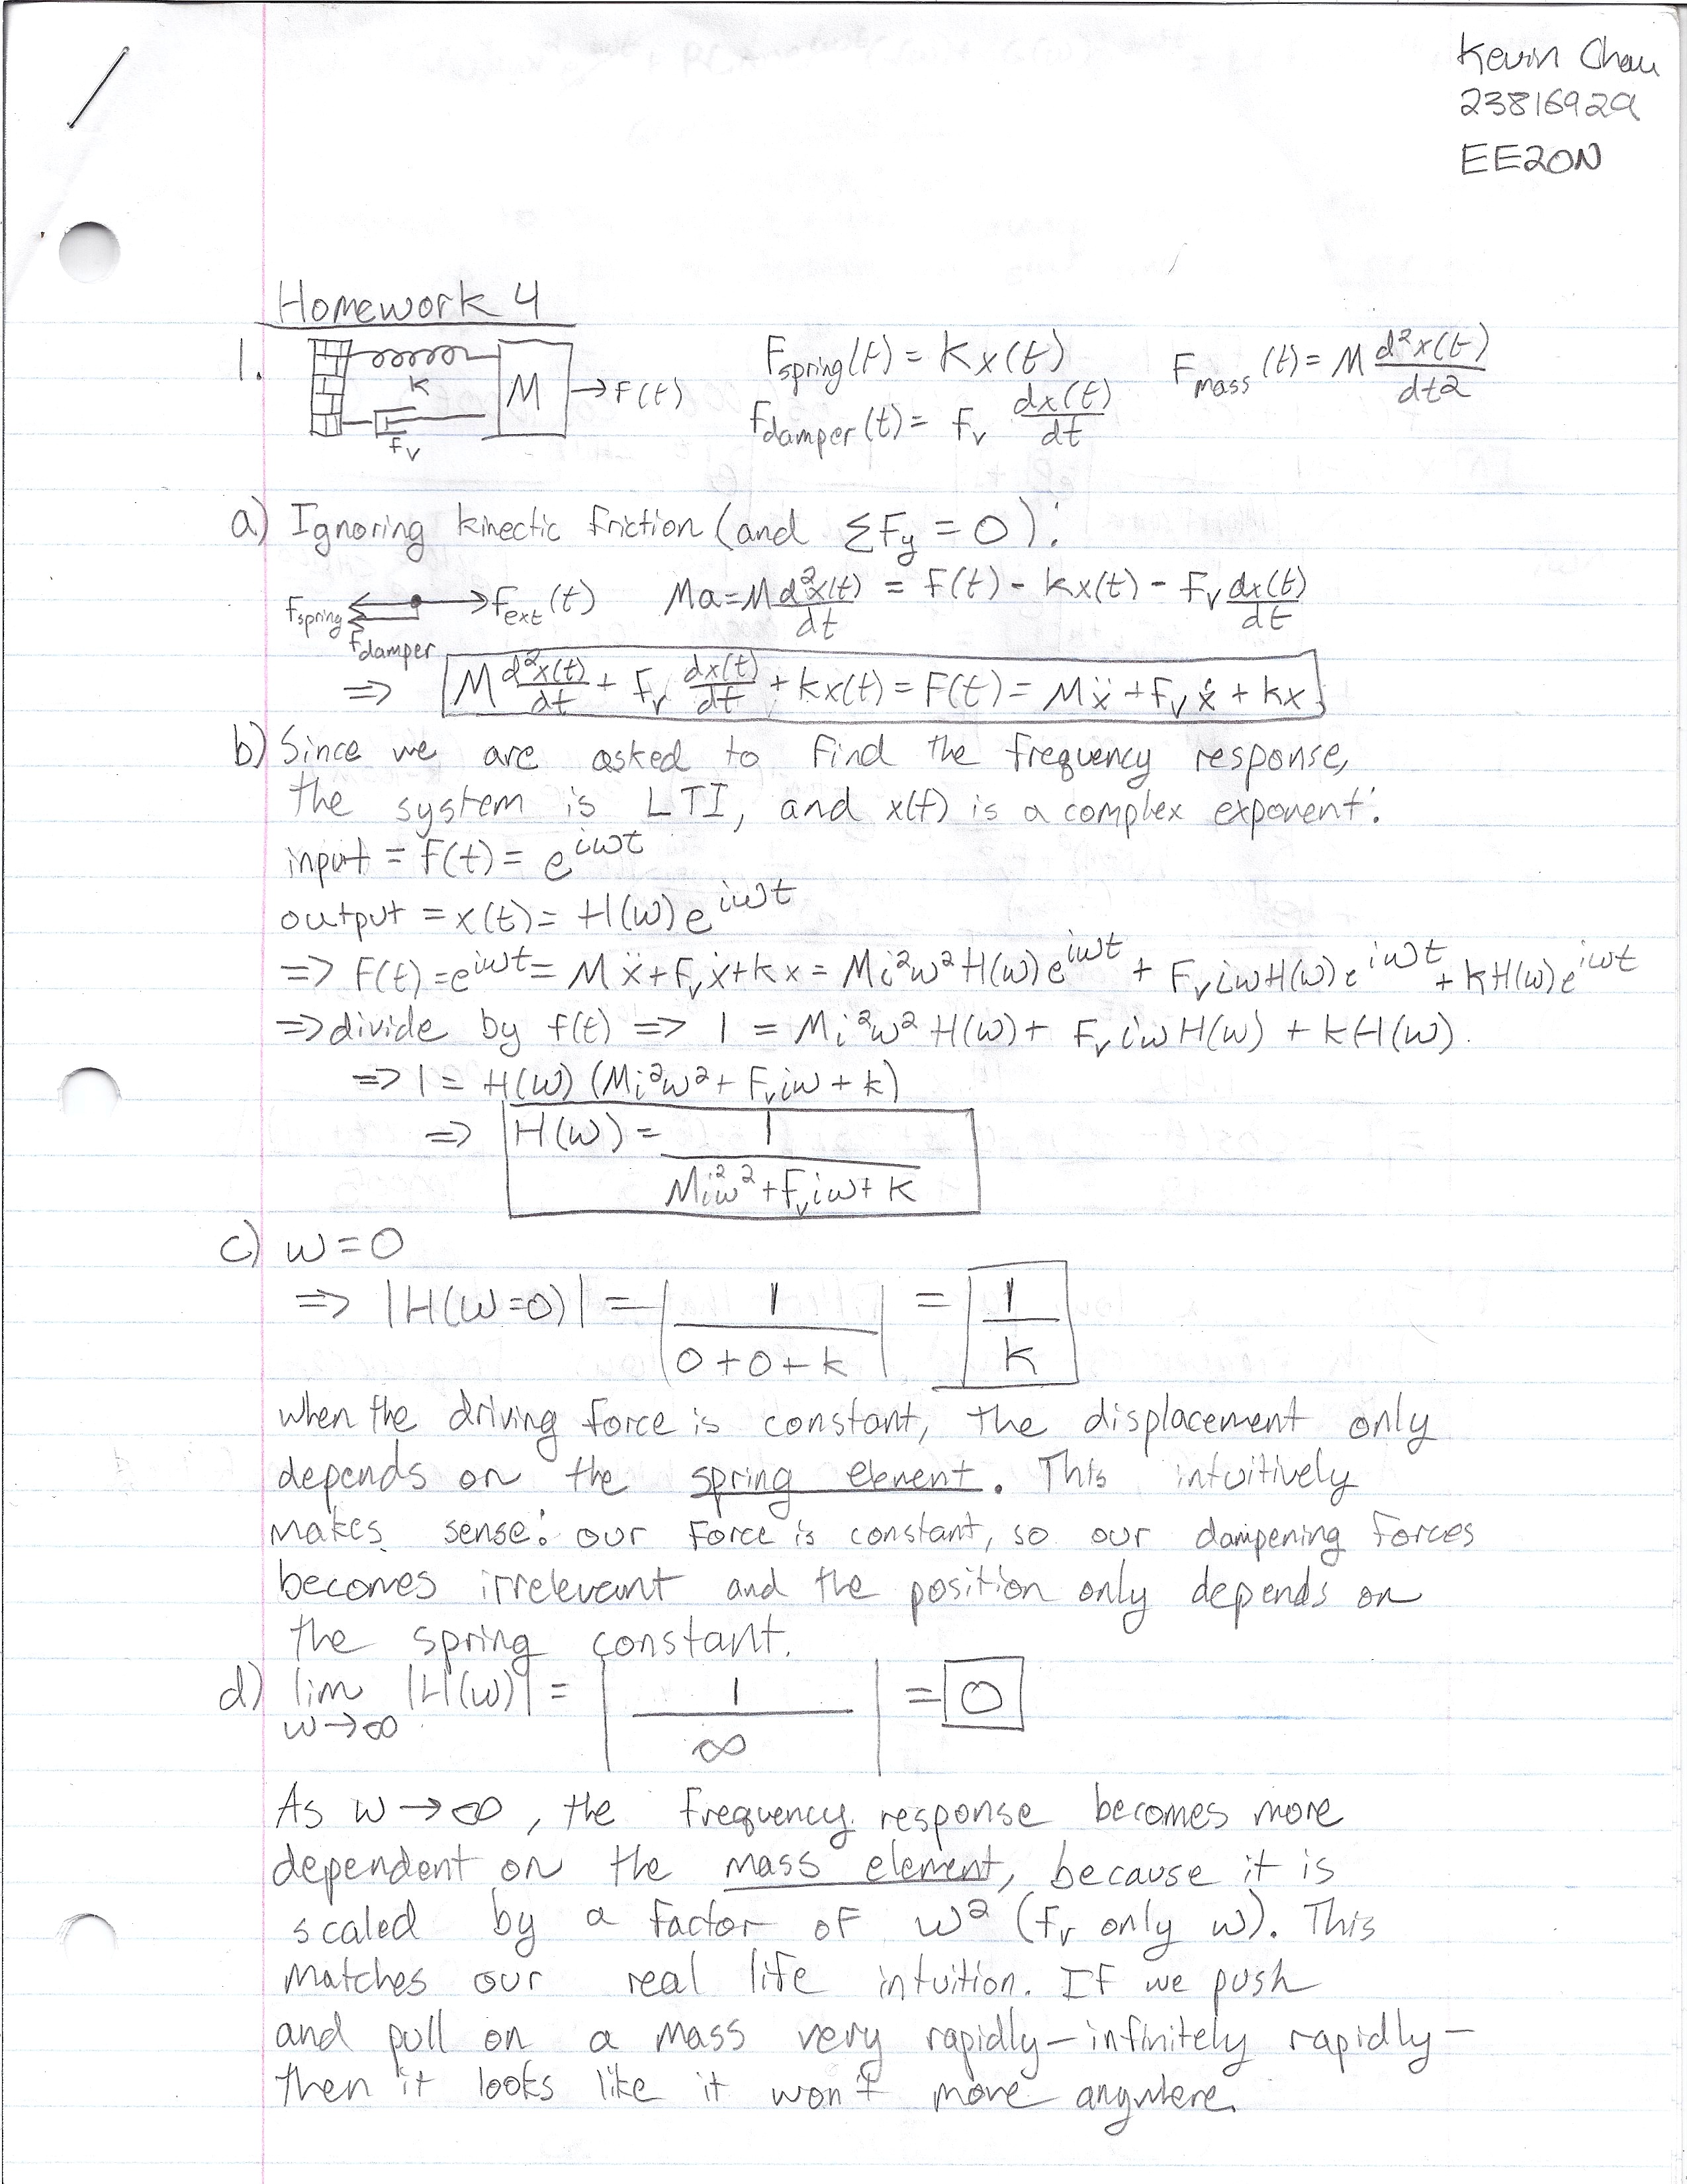 Kevin Chau
23816929
EE20N
Homework 4
1. K f_v M →F(t) F_spring(t) = Kx(t) F_mass(t) = M d²x(t)/dt2
F_damper(t) = f_v dx(t)/dt
a) Ignoring kinectic friction (and ΣF_y = 0):
F_spring F_damper F_ext(t) Ma = M d²x(t)/dt = F(t) - kx(t) - F_v dx(t)/dt
⇒ M d²x(t)/dt + F_v dx(t)/dt + kx(t) = F(t) = Mẍ + F_v ẋ + kx
b) Since we are asked to find the frequency response,
the system is LTI, and x(t) is a complex exponent:
input = F(t) = e^{iωt}
output = x(t) = H(ω)e^{iωt}
⇒ F(t) = e^{iωt} = Mẍ + F_v ẋ + kx = Mi²ω²H(ω)e^{iωt} + F_v iωH(ω)e^{iωt} + kH(ω)e^{iωt}
⇒ divide by f(t) ⇒ 1 = Mi²ω² H(ω) + F_v iω H(ω) + kH(ω).
⇒ 1 = H(ω) (Mi²ω² + F_v iω + k)
⇒ H(ω) = 1/(Mi²ω² + F_v iω + k)
c) ω = 0
⇒ |H(ω=0)| = |1/(0+0+k)| = 1/k
when the driving force is constant, the displacement only
depends on the spring element. This intuitively
makes sense: our force is constant, so our dampening forces
becomes irrelevant and the position only depends on
the spring constant.
d) lim ω→∞ |H(ω)| = |1/∞| = 0
As ω→∞, the frequency response becomes more
dependent on the mass element, because it is
scaled by a factor of ω² (f_v only ω). This
matches our real life intuition. If we push
and pull on a mass very rapidly—infinitely rapidly—
then it looks like it won't move anywhere.